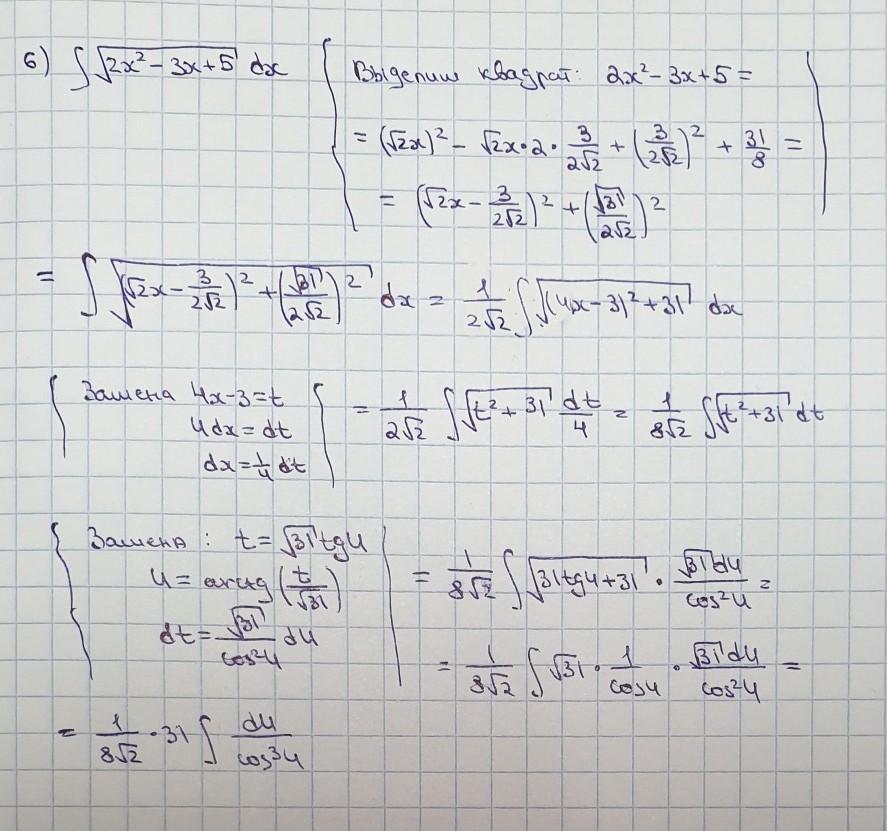 6) ∫√(2x² - 3x + 5) dx { Выделим квадрат: 2x² - 3x + 5 =
= (√2x)² - √2x · 2 · 3/(2√2) + (3/(2√2))² + 31/8 =
= (√2x - 3/(2√2))² + (√31/(2√2))²
= ∫√((√2x - 3/(2√2))² + (√31/(2√2))²) dx = 1/(2√2) ∫√((4x - 3)² + 31) dx
{ Замена 4x - 3 = t { = 1/(2√2) ∫√(t² + 31) dt/4 = 1/(8√2) ∫√(t² + 31) dt
4dx = dt
dx = 1/4 dt
{ Замена: t = √31 tg u
u = arctg(t/√31) = 1/(8√2) ∫√(31tg u + 31) · √31 du/cos²u =
dt = √31/cos²u du
= 1/(8√2) ∫√31 · 1/cos u · √31 du/cos²u =
= 1/(8√2) · 31 ∫ du/cos³u